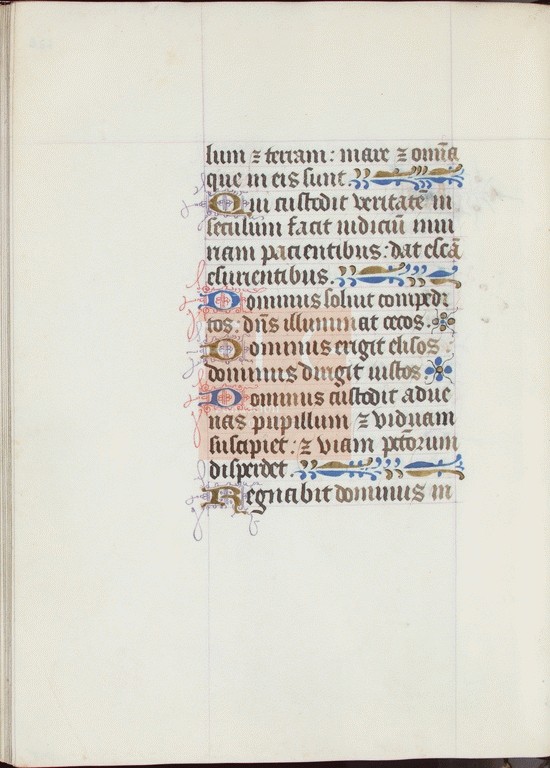 lum ⁊ terram: mare ⁊ om̄ia
que in eis sunt.
Qui custodit veritatē in
seculum facit iudiciū iniu
riam pacientibus: dat escā
esurientibus.
Dominus soluit compedi
tos: dn̄s illuminat cecos.
Dominus erigit elisos
dominus dirigit iustos.
Dominus custodit adue
nas pupillum ⁊ viduam
suscipiet: ⁊ viam pctōrum
disperdet.
Regnabit dominus in